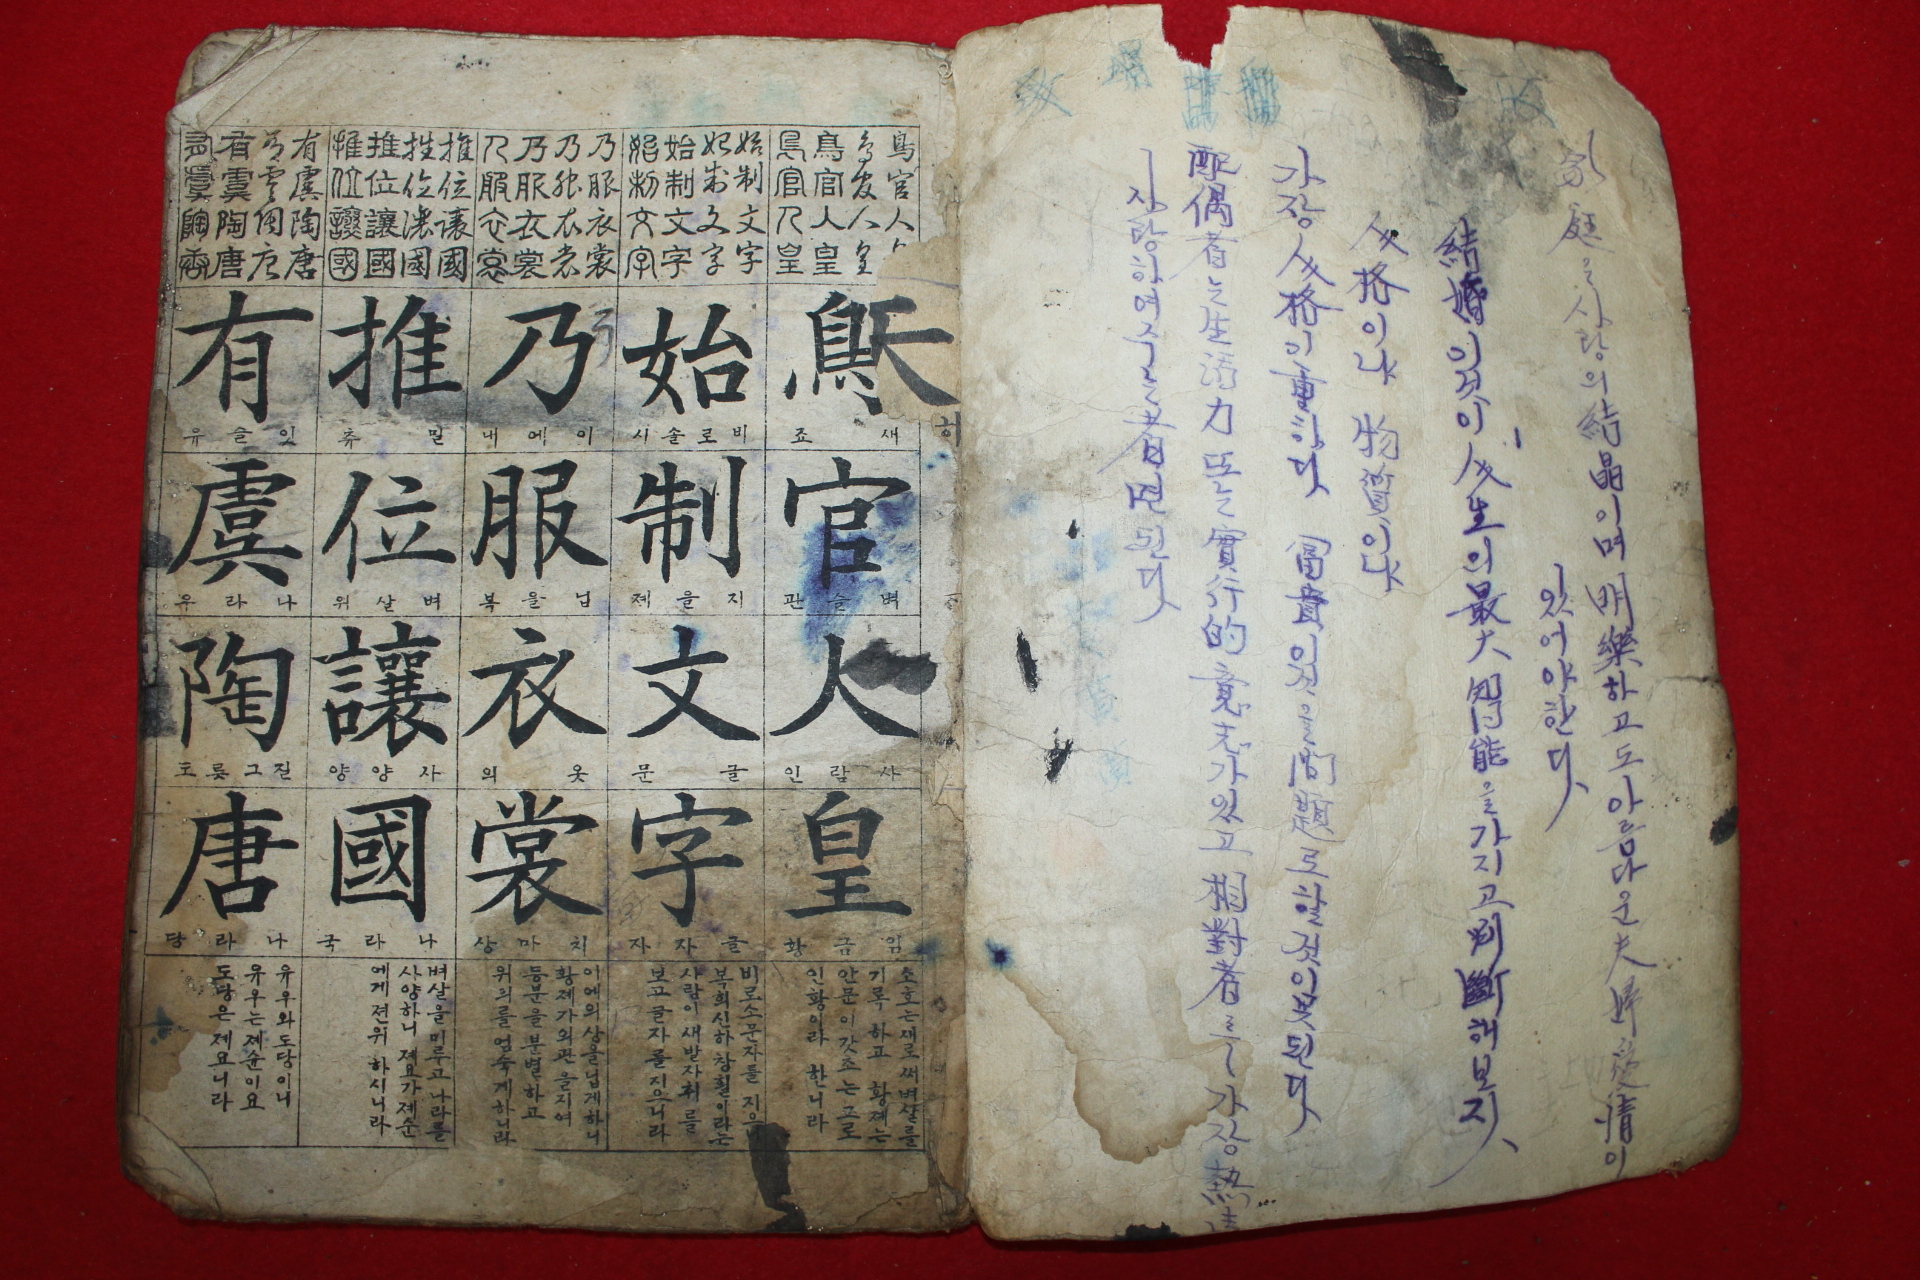 家庭을 사랑의 結晶이며 明樂하고도 아름다운 夫婦愛情이
있어야한다
結婚이것이 人生의 最大 智能을 가지고 判斷해보지
人格이냐 物質이냐
가장 人格이 重하다 富貴이것을 問題로 할것이 못된다
配偶者는 生活力 또는 實行的 意志가 있고 相對者를 가장 熱情
사랑하여주는 者면 된다
鳥官人
鳥官人皇
鳥官人皇
始制文字
始制文字
始制文字
始制文字
乃服衣裳
乃服衣裳
乃服衣裳
乃服衣裳
推位讓國
推位讓國
推位讓國
推位讓國
有虞陶唐
有虞陶唐
有虞陶唐
有虞陶唐
鳥 始 乃 推 有
새 죠
비로솔 시
이에 내
밀 츄
잇슬 유
官 制 服 位 虞
벼슬 관
지을 졔
닙을 복
벼살 위
나라 우
人 文 衣 讓 陶
사람 인
글 문
옷 의
자양 양
질그릇 도
皇 字 裳 國 唐
임금 황
글자 자
치마 상
나라 국
나라 당
소호는새로써벼살을
기록하고 황뎨는
안문이갓초는고로
인황이라 한니라
비로소문자를 지은
복희신하창힐이라는
사람이새발자취를
보고글자를지으니라
이에의상을닙게하니
황졔가의관을지여
등분을분별하고
위의를엄숙게하니라
벼살을미루고나라를
사양하니 졔요가졔순
에게젼위 하시니라
유우와도당이니
유우는졔순이요
도당은졔요니라